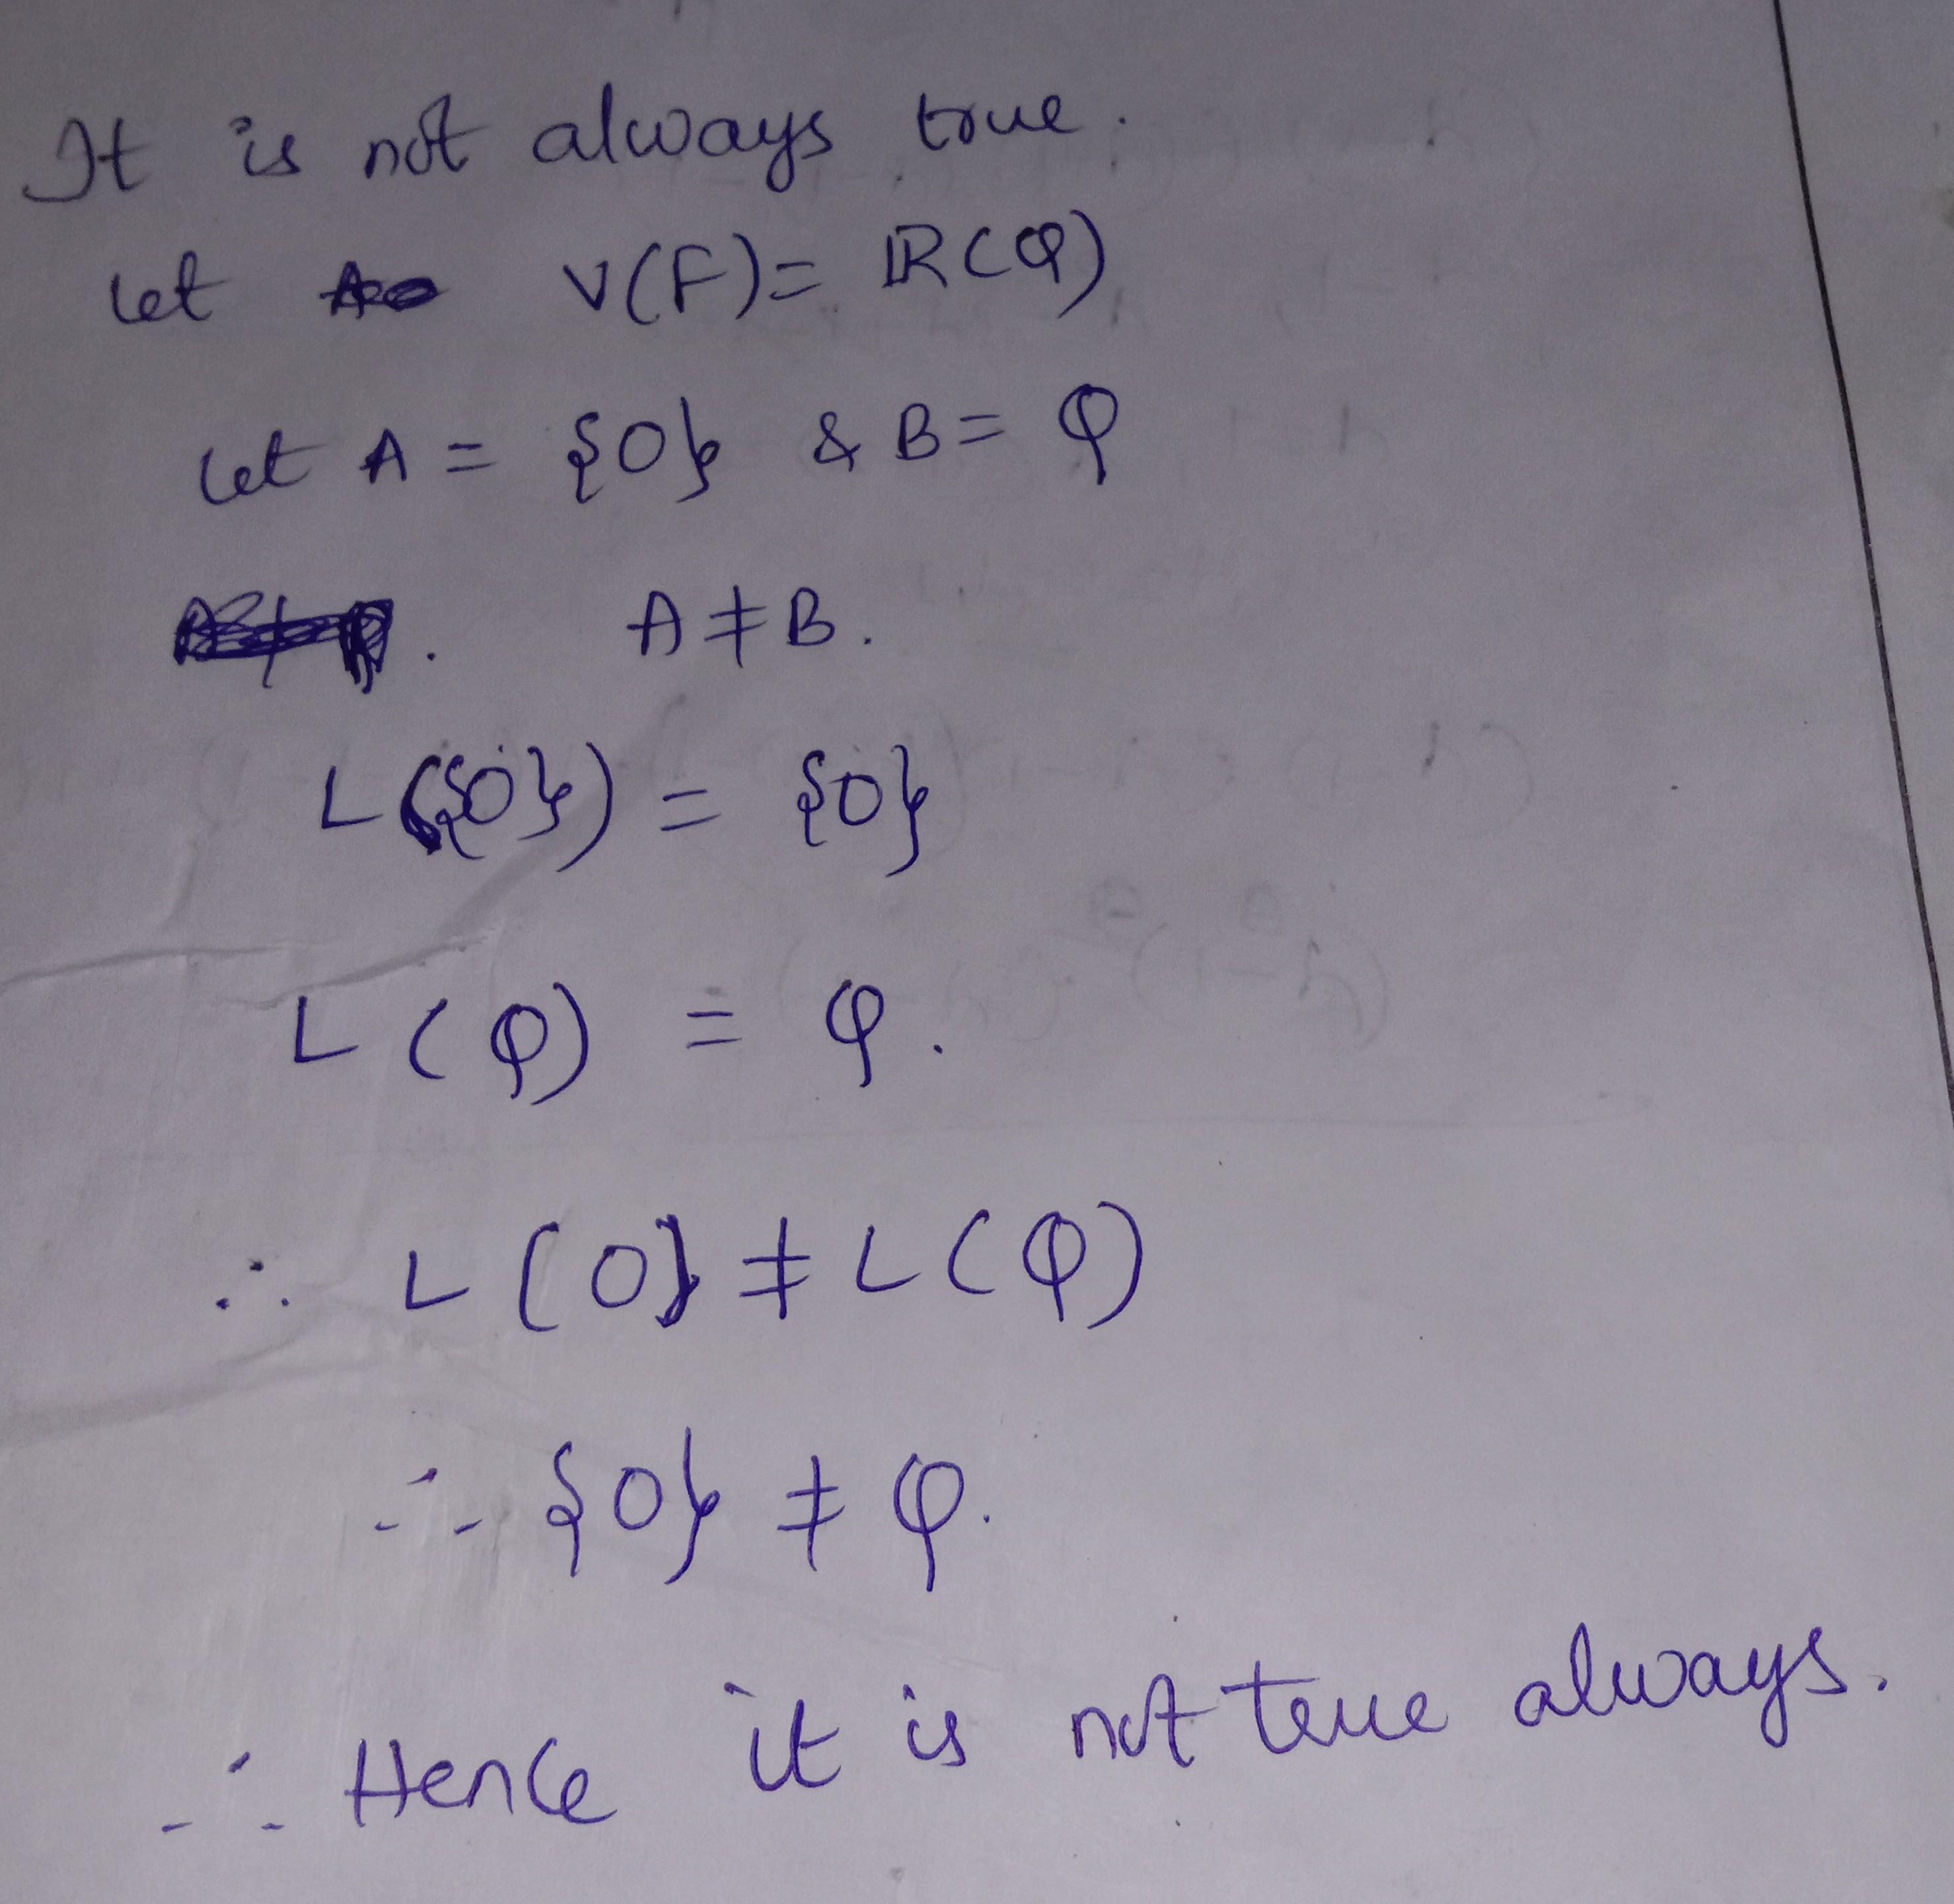 It is not always true.
let V(F) = ℝ(Q)
let A = {0} & B = Q
A ≠ B.
L({0}) = {0}
L(Q) = Q.
∴ L{0} ≠ L(Q)
∴ {0} ≠ Q.
∴ Hence it is not true always.